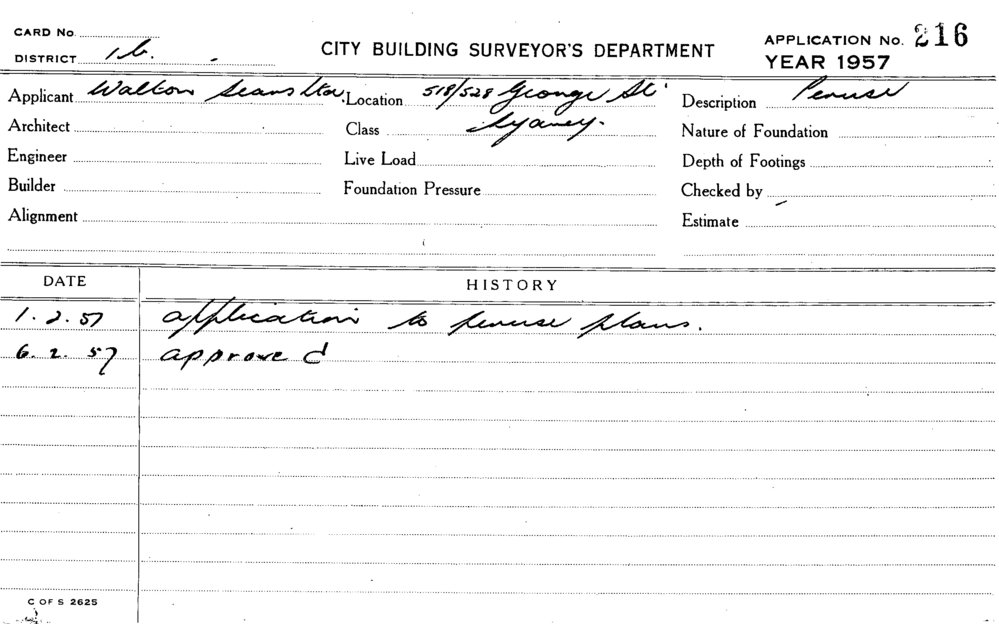 CARD No.
DISTRICT 1b.
CITY BUILDING SURVEYOR'S DEPARTMENT
APPLICATION No. 216
YEAR 1957
Applicant Walton Sears Ltd. Location 518/528 George St. Description Peruse
Architect Class Sydney. Nature of Foundation
Engineer Live Load Depth of Footings
Builder Foundation Pressure Checked by
Alignment Estimate
DATE HISTORY
1.2.57 application to peruse plans.
6.2.57 approved
C OF S 2625